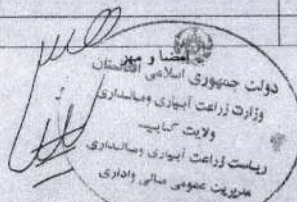 امضا و مهر
دولت جمهوری اسلامی افغانستان
وزارت زراعت آبیاری ومالداری
ولایت کاپیسا
ریاست زراعت آبیاری ومالداری
مدیریت عمومی مالی واداری